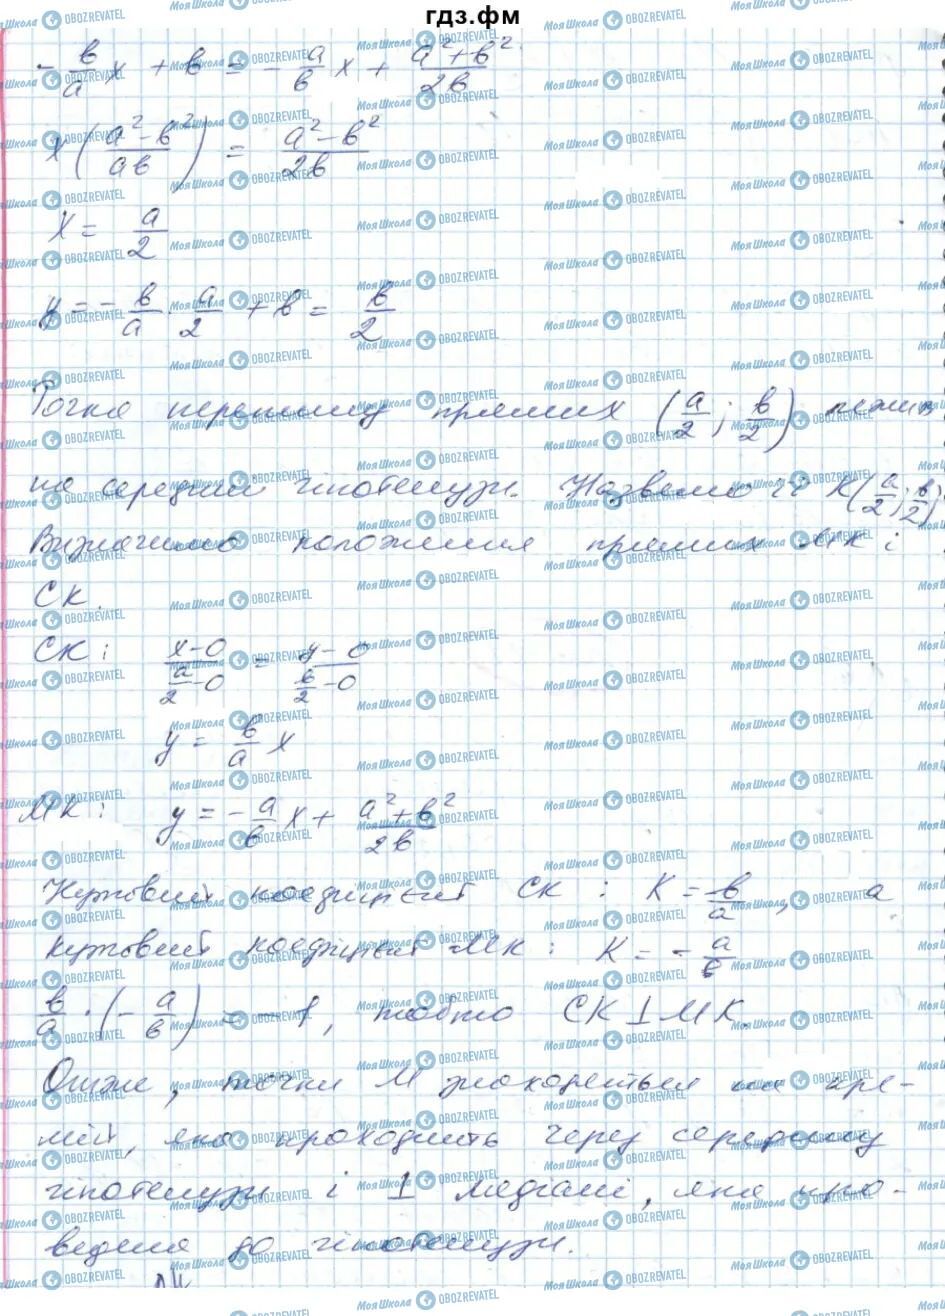 гдз.фм
-в/а x + в = -а/в x + (а²+в²)/2в
x((а²-в²)/ав) = (а²-в²)/2в
x = а/2
y = -в/а · а/2 + в = в/2
Точка перетину прямих (а/2; в/2) лежить
на середині гіпотенузи. Назвемо її К(а/2; в/2).
Визначимо положення прямих МК і
СК.
СК: (x-0)/(а/2-0) = (y-0)/(в/2-0)
y = в/а x
МК: y = -а/в x + (а²+в²)/2в
Кутовий коефіцієнт СК: К = в/а, а
кутовий коефіцієнт МК: К = -а/в
в/а · (-а/в) = -1, тобто СК⊥МК.
Отже, точки М знаходяться на пря-
мій, яка проходить через середину
гіпотенузи і ⊥ медіані, яка про-
ведена до гіпотенузи.
МояШкола OBOZREVATEL